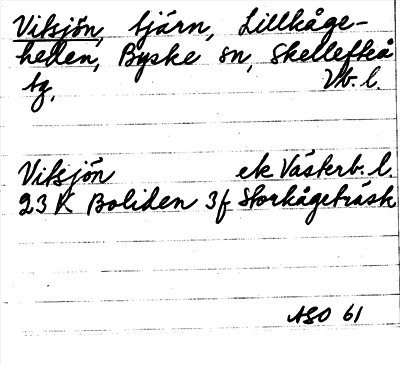 Vitsjön, tjärn, Lillkåge-
heden, Byske sn, Skellefteå
tg, Vb. l.
Vitsjön ek Västerb. l.
23 K Boliden 3f Storkågeträsk
ASO 61